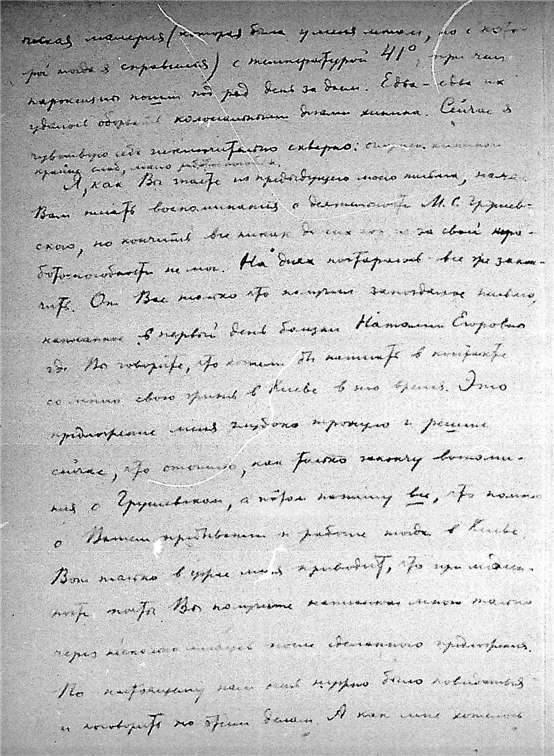 ческая малярия (которая была у меня летом, но с кото-
рой тогда я справился) с температурой 41°, при чем
пароксизмы пошли под ряд день за днем. Едва-едва их
удалось оборвать колоссальными дозами хинина. Сейчас я
чувствую себя исключительно скверно:
крайне слаб, мало работоспособен.
Я, как Вы знаете из предыдущего моего письма, начал
Вам писать воспоминания о деятельности М.С. Грушев-
ского, но кончить все никак до сих пор из за своей нера-
ботоспособности не мог. На днях постараюсь все же закон-
чить. От Вас только что получил запоздалое письмо,
написанное в первый день болезни Наталии Егоровны
где Вы говорите, что хотели бы написать в контакте
со мною свою жизнь в Киеве в то время. Это
предложение меня глубоко тронуло и решил
сейчас, что отвечу, как только закончу воспоми-
ния о Грушевском, а потом напишу все, что помню
о Вашем пребывании и работе тогда в Киеве.
Вот только в ужас меня приводит, что при
почты Вы получите написанное мною только
через несколько месяцев после сделанного предложения.
По настоящему нам нужно было повидаться
и поговорить по этим делам. А как мне хотелось